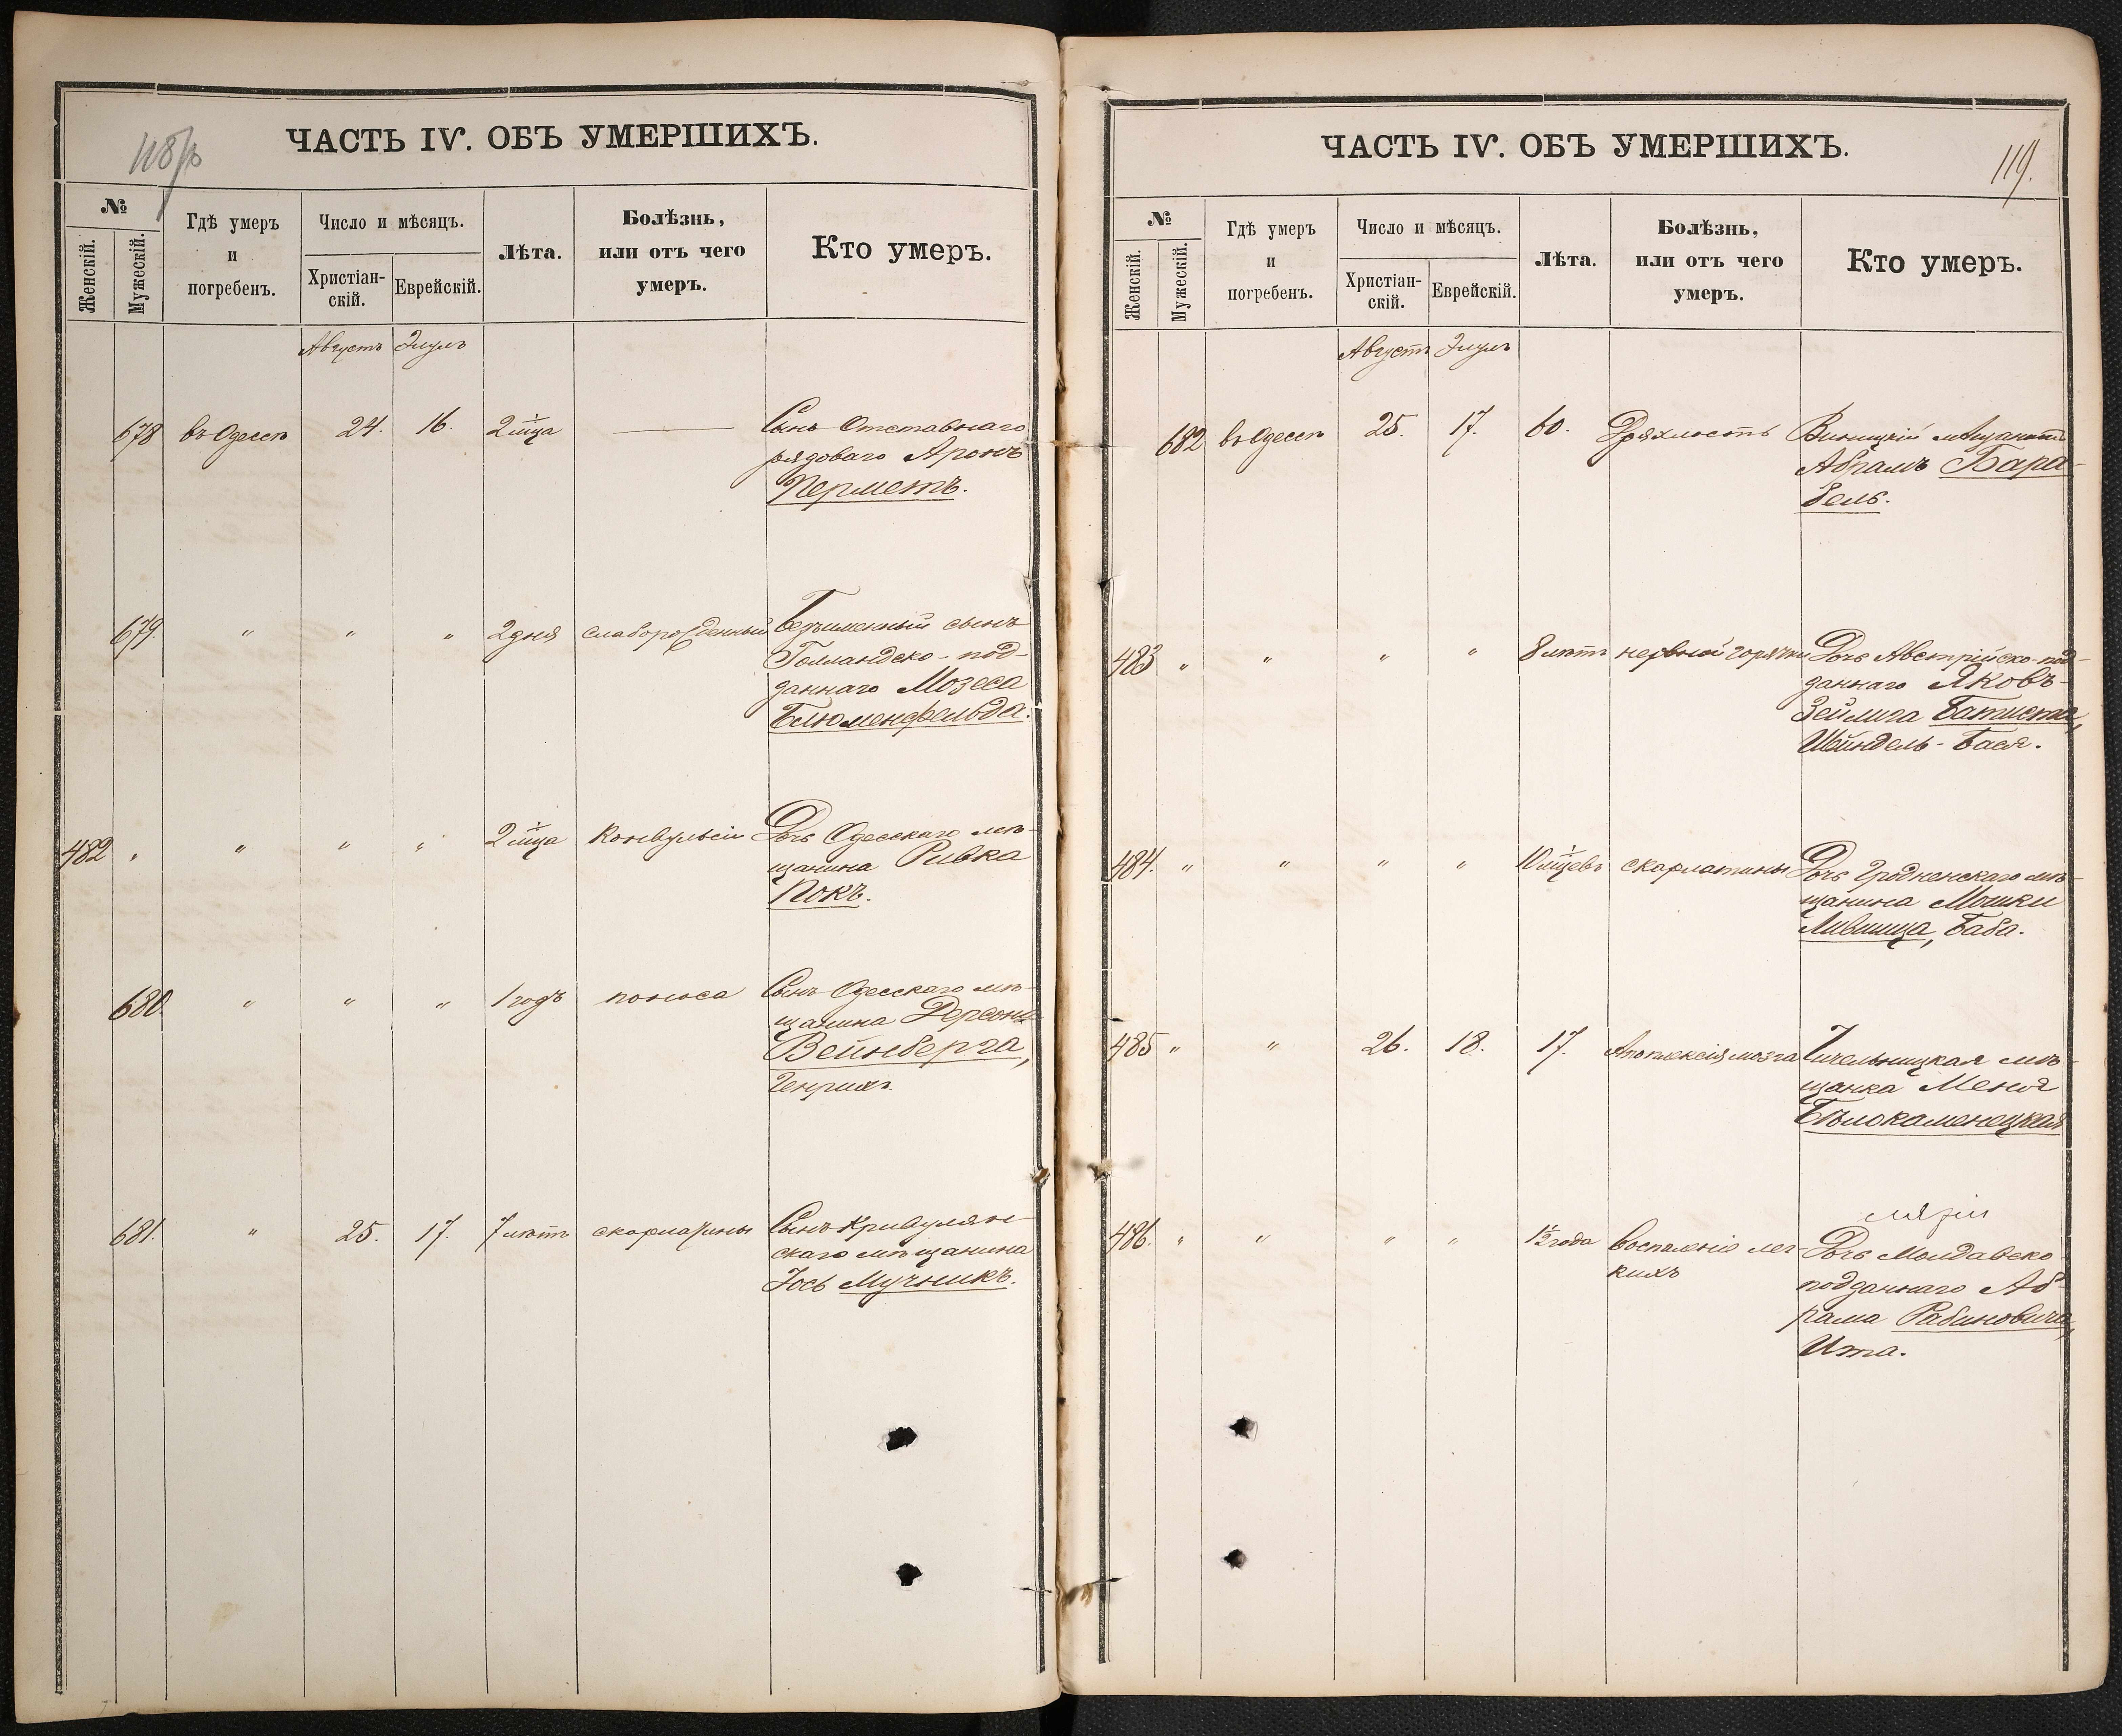 118 об
ЧАСТЬ IV. ОБЪ УМЕРШИХЪ.
№
Женскій.
Мужескій.
Гдѣ умеръ
и
погребенъ.
Число и мѣсяцъ.
Христіан-
скій.
Еврейскій.
Лѣта.
Болѣзнь,
или отъ чего
умеръ.
Кто умеръ.
Августъ Элулъ
678 въ Одессѣ 24. 16. 2 мца — Сынъ Отставнаго
рядоваго Аронъ
Перметъ.
679. " " " 2 дня слаборожденный Безъименный сынъ
Голландско-под-
даннаго Мозеса
Блюменфельда.
482 " " " " 2 мца Конвульсіи Дочь Одесскаго мѣ-
щанина Ривка
Покъ.
680. " " " 1 годъ поноса Сынъ Одесскаго мѣ-
щанина Герсона
Вейнберга,
Генрихъ.
681. " 25. 17. 7 лѣтъ скарлатины Сынъ Кривулян-
скаго мѣщанина
Іось Мучникъ.
119.
ЧАСТЬ IV. ОБЪ УМЕРШИХЪ.
№
Женскій.
Мужескій.
Гдѣ умеръ
и
погребенъ.
Число и мѣсяцъ.
Христіан-
скій.
Еврейскій.
Лѣта.
Болѣзнь,
или отъ чего
умеръ.
Кто умеръ.
Августъ Элулъ
682 въ Одессѣ 25. 17. 60. Дряхлость Виницкій мѣщанинъ
Абрамъ Бара-
бель.
483 " " " " 8 лѣтъ нервной горячки Дочь Австрійско-под-
даннаго Яковъ-
Зейлига Батиста,
Шейндель-Бася.
484. " " " " 10 мцевъ скарлатины Дочь Гродненскаго мѣ-
щанина Мошки
Лившица, Баба.
485 " " 26. 18. 17. Апоплексія мозга Чичельницкая мѣ-
щанка Меня
Бѣлокаменецкая
486. " " " " 1½ года Воспаленіе лег-
кихъ
Дочь Молдавско
подданнаго Аб-
рама Рабиновича,
Ита.